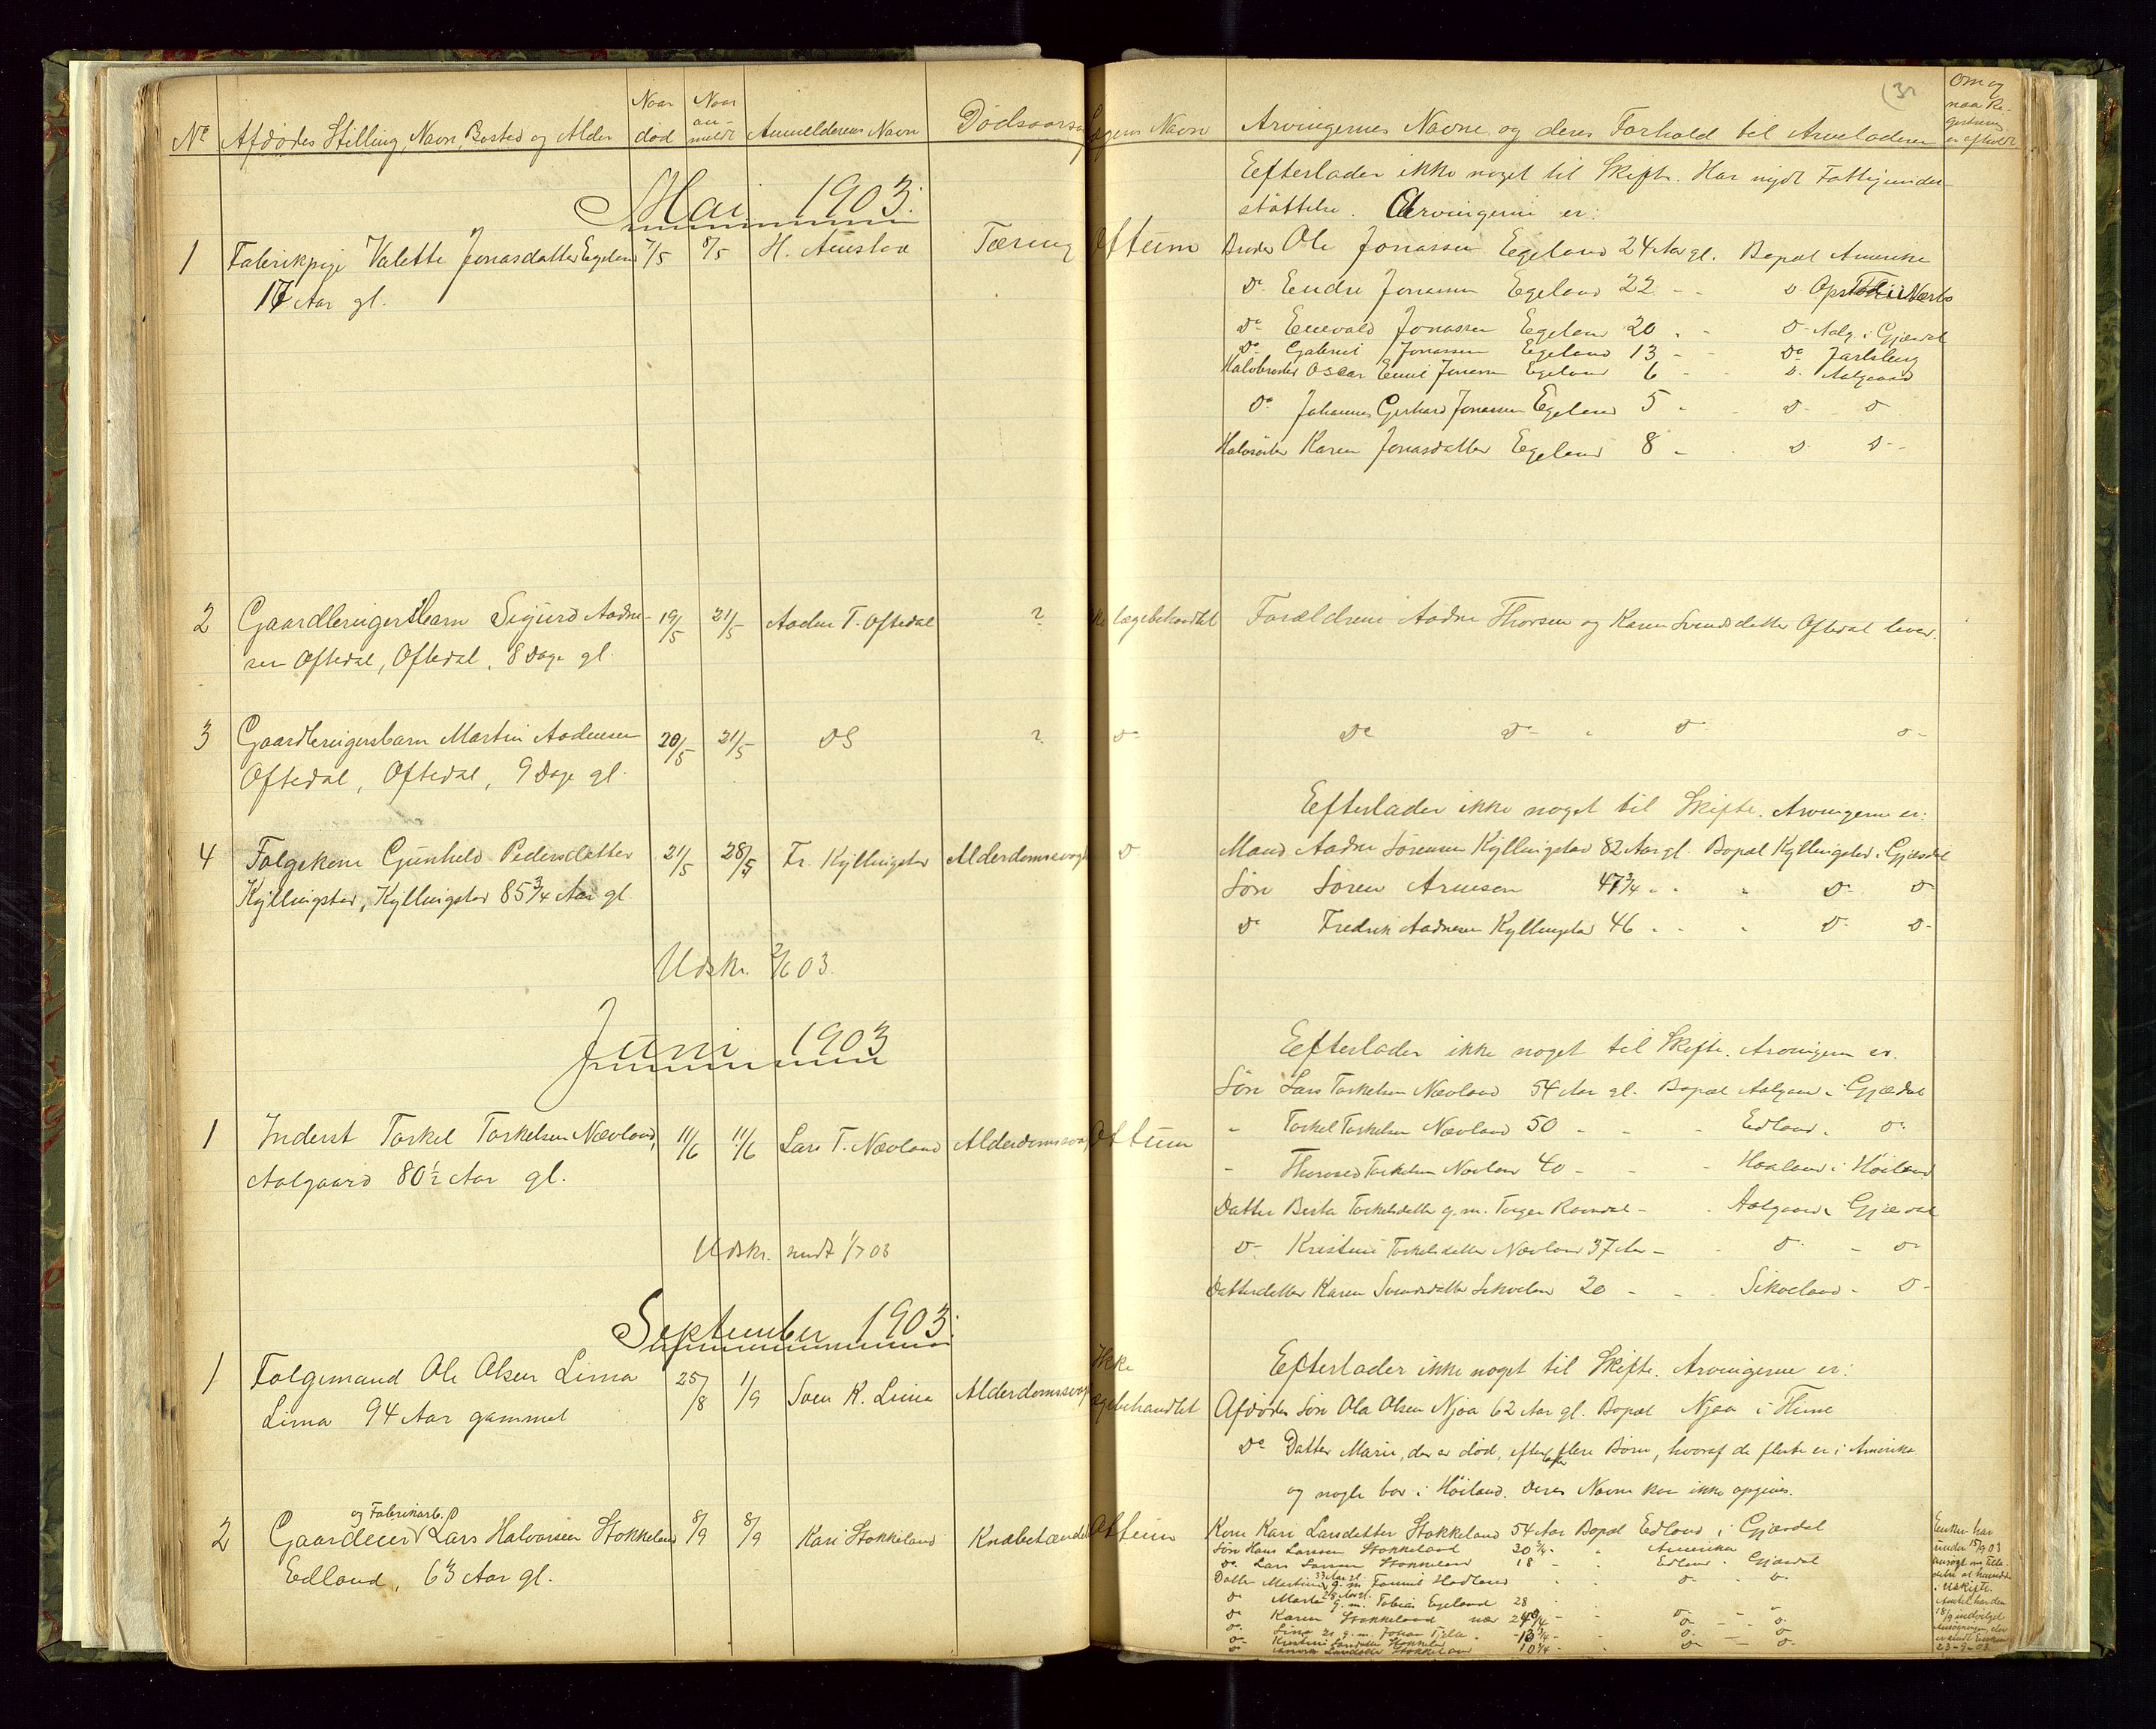 Nr Afdødes Stilling, Navn, Bosted og Alder
Naar død
Naar an- meldt
Anmelderens Navn
Dødsaarsag
Lægens Navn
Arvingernes Navne og deres Forhold til Arveladeren
Om og naar Re- gistrering er afholdt
Mai 1903.
1 Fabrikpige Valette Jonasdatter Egeland 7/5 8/5 H. Auestad Tæring Oftum
17 Aar gl.
Efterlader ikke noget til Skifte. Har nydt Fattigunder-
støttelse. Arvingerne er:
Broder Ole Jonassen Egeland 24 Aar gl. Bopæl Amerika
Do Endre Jonassen Egeland 22 - - Do
Do Enevald Jonassen Egeland 20 - - Do Aalg. i Gjæsdal
Do Gabriel Jonassen Egeland 13 - - Do Jarlsberg
Halvbroder Oscar Emil Jonassen Egeland 6 - - Do Aalgaard
Do Johannes Gerhard Jonassen Egeland 5 - - Do Do
Halvsøster Karen Jonasdatter Egeland 8 - - Do Do
2 Gaardbrugersbarn Sigurd Aadne- 19/5 21/5 Aadne T. Oftedal ? Ikke lægebehandlet
sen Oftedal, Oftedal, 8 Dage gl.
Forældrene Aadne Thorsen og Karen Svendsdatter Oftedal lever.
3 Gaardbrugersbarn Martin Aadnesen 20/5 21/5 Do ? Do
Oftedal, Oftedal, 9 Dage gl.
Do Do - Do Do
4 Følgekone Gunhild Pedersdatter 21/5 28/5 Fr. Kyllingstad Alderdomssvagh Do
Kyllingstad, Kyllingstad 85 3/4 Aar gl.
Efterlader ikke noget til Skifte. Arvingerne er:
Mand Aadne Sørensen Kyllingstad 82 Aar gl. Bopæl Kyllingstad i Gjæsdal
Søn Søren Arnesen 47 3/4 - - - Do Do
Do Fredrik Aadnesen Kyllingstad 46 - - - Do Do
Udskr. 2/6 03.
Juni 1903
1 Inderst Torkel Torkelsen Nævland, 11/6 11/6 Lars T. Nævland Alderdomssvag Oftum
Aalgaard 80 1/2 Aar gl.
Efterlader ikke noget til Skifte. Arvingerne er.
Søn Lars Torkelsen Nævland 54 Aar gl. Bopæl Aalgaard i Gjæsdal
- Torkel Torkelsen Nævland 50 - - - Edland - Do
- Torkelsen Nævland 40 - - - Haaland i Høiland
Datter Berta Torkelsdatter g. m. Torger Ravndal - - Aalgaard i Gjæsdal
Do Kristine Torkelsdatter Nævland 37 Aar - - Do - Do
Datterdatter Karen Svendsdatter Sikveland 20 - - - Sikveland - Do
Udskr. sendt 1/7 03
September 1903.
1 Følgemand Ole Olsen Lima 25/8 1/9 Sven K. Lima Alderdomssvag Ikke lægebehandlet
Lima 94 Aar gammel
Efterlader ikke noget til Skifte. Arvingerne er:
Afdødes Søn Ola Olsen Njaa 62 Aar gl. Bopæl Njaa i Thime
Do Datter Marie, der er død, efterlader flere Børn, hvoraf de fleste er i Amerika
og nogle bor i Høiland. Deres Navne kan ikke opgives.
2 Gaardeier og Fabrikarb. Lars Halvorsen Stokkeland 8/9 8/9 Kari Stokkeland Knæbetændel Oftum
Edland, 63 Aar gl.
Kone Kari Larsdatter Stokkeland 54 Aar Bopæl Edland i Gjæsdal
Søn Hans Larssen Stokkeland 20 3/4 - - Amerika
Do Lars Larssen Stokkeland 18 - - Edland - Gjæsdal
Datter Martine 33 Aar gl. g. m. Hadland - - Do - Do
Do Marta g. m. Tobias Egeland 28
Do Karen Stokkeland - - Do - Do
Do Lina g. m. Johan - - Do - Do
Do Kristine Larsdatter Stokkeland 13 3/4 - - Do - Do
Do Larsdatter Stokkeland 10 3/4 - - Do - Do
Enken har
under 15/9 03
ansøgt om Tilla-
delse at hensidde
i Uskifte.
Amtet har den
18/9 indvilget
23-9-03